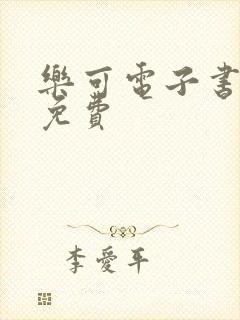 樂可電子書
免費
李愛平